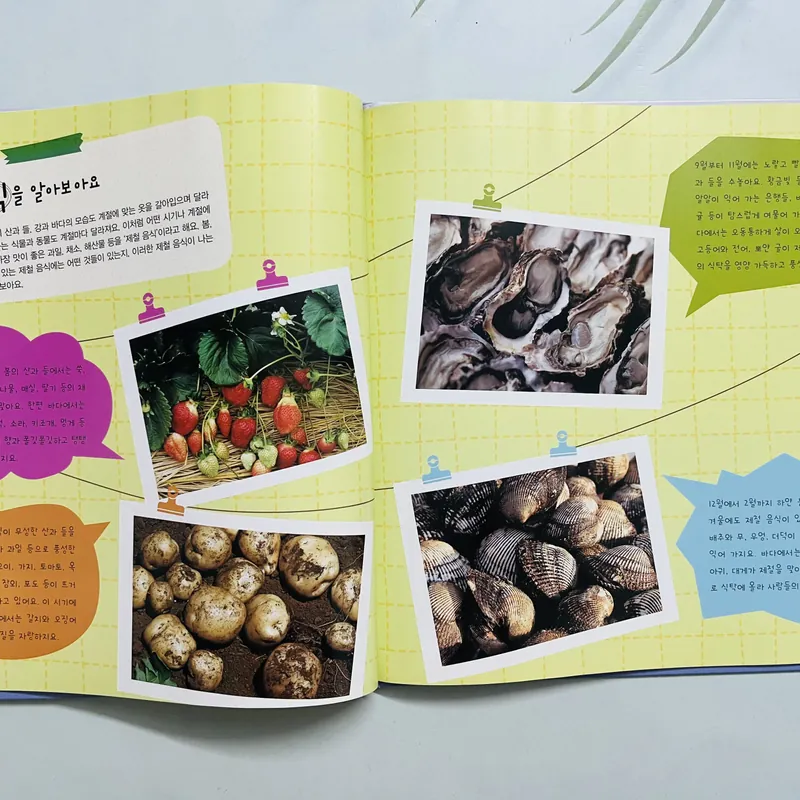 을 알아보아요
산과 들, 강과 바다의 모습도 계절에 맞는 옷을 갈아입으며 달라
는 식물과 동물도 계절마다 달라져요. 이처럼 어떤 시기나 계절에
가장 맛이 좋은 과일, 채소, 해산물 등을 '제철 음식'이라고 해요. 봄,
있는 제철 음식에는 어떤 것들이 있는지, 이러한 제철 음식이 나는
보아요.
봄의 산과 들에서는 쑥,
나물, 매실, 딸기 등의 채
랄아요. 한편 바다에서는
소라, 키조개, 멍게 등
향과 쫄깃쫄깃하고 탱탱
지요.
이 무성한 산과 들을
과일 등으로 풍성한
오이, 가지, 토마토, 옥
참외, 포도 등이 뜨거
고 있어요. 이 시기에
에서는 갈치와 오징어
질을 자랑하지요.
9월부터 11월에는 노랗고 빨
과 들을 수놓아요. 황금빛
알알이 익어 가는 은행들,
귤 등이 탐스럽게 여물어 가
다에서는 오동통하게 살이 오
고등어와 전어, 뽀얀 굴이 제
의 식탁을 영양 가득하고 풍성
12월에서 2월까지 하얀
겨울에도 제철 음식이 있
배추와 무, 우엉, 더덕이
익어 가지요. 바다에서는
아귀, 대게가 제철을 맞이
로 식탁에 올라 사람들의